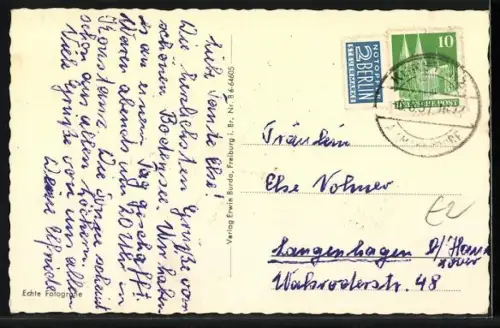 Liebe Tante Else!
Die herzlichsten Grüße vom
schönen Bodensee. Wir haben
es an einem Tag geschafft.
Waren abends um 20 Uhr in
Konstanz. Die Sonne scheint
schon aus allen Löchern.
Viele Grüße von uns allen
Deine Elfriede
Verlag Erwin Burda, Freiburg i. Br., Nr. B 6-64605
Echte Fotografie
NOTOPFER
2 BERLIN
STEUERMARKE
10
DEUTSCHE POST
Fräulein
Else Volmer
Langenhagen b/Hann
over
Walsroderstr. 48
E2